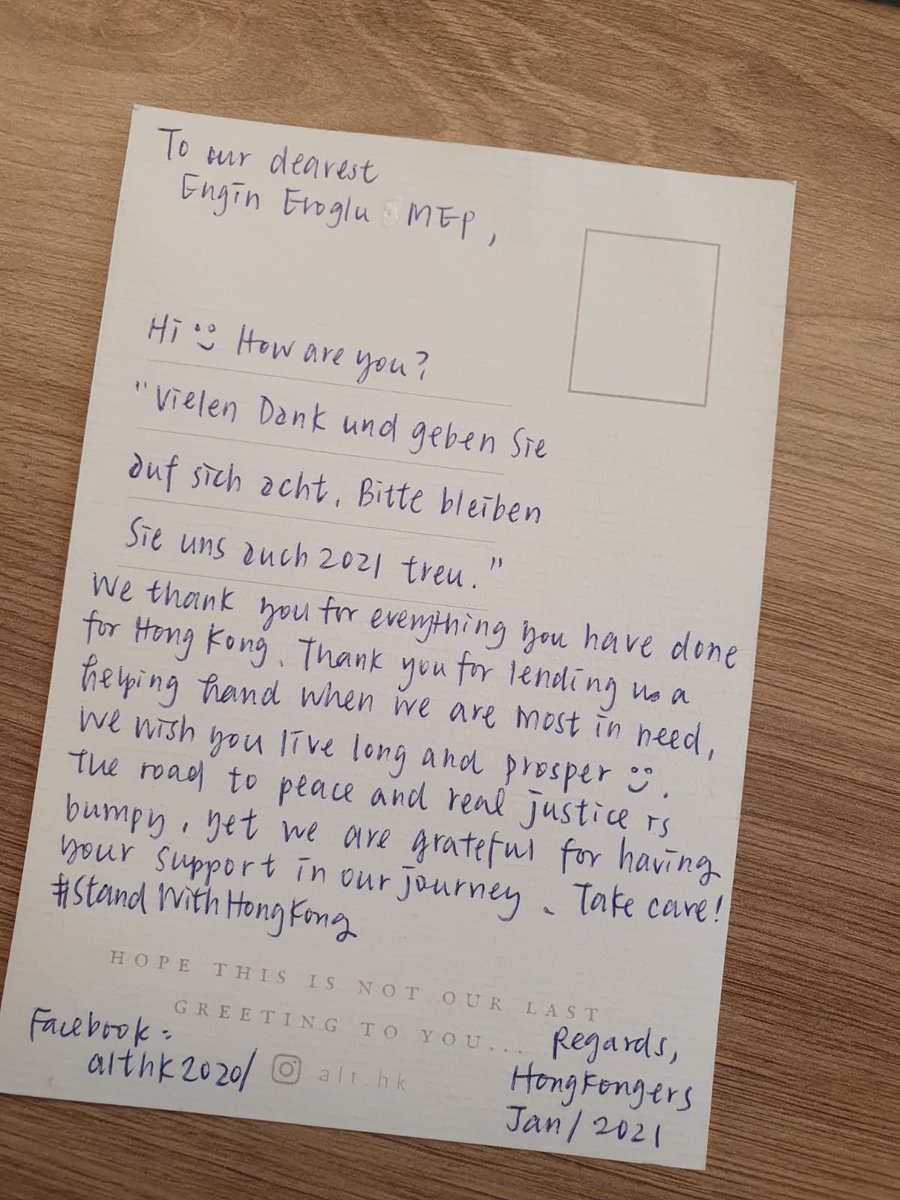 To our dearest
Engin Eroglu MEP,
Hi How are you?
"Vielen Dank und geben Sie
auf sich acht. Bitte bleiben
Sie uns auch 2021 treu."
We thank you for everything you have done
for Hong Kong. Thank you for lending us a
helping hand when we are most in need,
We wish you live long and prosper .
The road to peace and real justice is
bumpy, yet we are grateful for having
your support in our journey. Take care!
#StandWithHongKong
HOPE THIS IS NOT OUR LAST
GREETING TO YOU...
Facebook:
althk2020/ alt hk
Regards,
HongKongers
Jan/2021